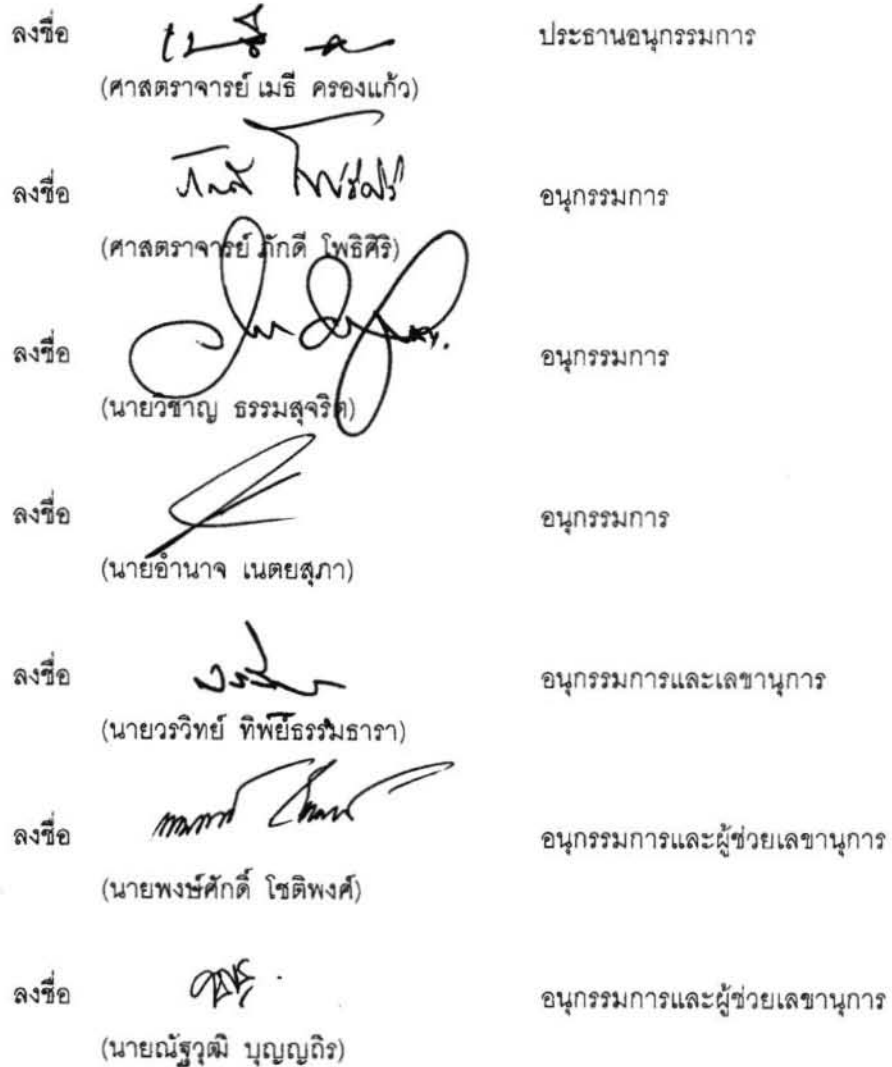 ลงชื่อ ประธานอนุกรรมการ
(ศาสตราจารย์ เมธี ครองแก้ว)
ลงชื่อ ภักดี โพธิศิริ อนุกรรมการ
(ศาสตราจารย์ ภักดี โพธิศิริ)
ลงชื่อ อนุกรรมการ
(นายวิชาญ ธรรมสุจริต)
ลงชื่อ อนุกรรมการ
(นายอำนาจ เนตยสุภา)
ลงชื่อ อนุกรรมการและเลขานุการ
(นายวรวิทย์ ทิพย์ธรรมธารา)
ลงชื่อ อนุกรรมการและผู้ช่วยเลขานุการ
(นายพงษ์ศักดิ์ โชติพงศ์)
ลงชื่อ อนุกรรมการและผู้ช่วยเลขานุการ
(นายณัฐวุฒิ บุญญถิร)